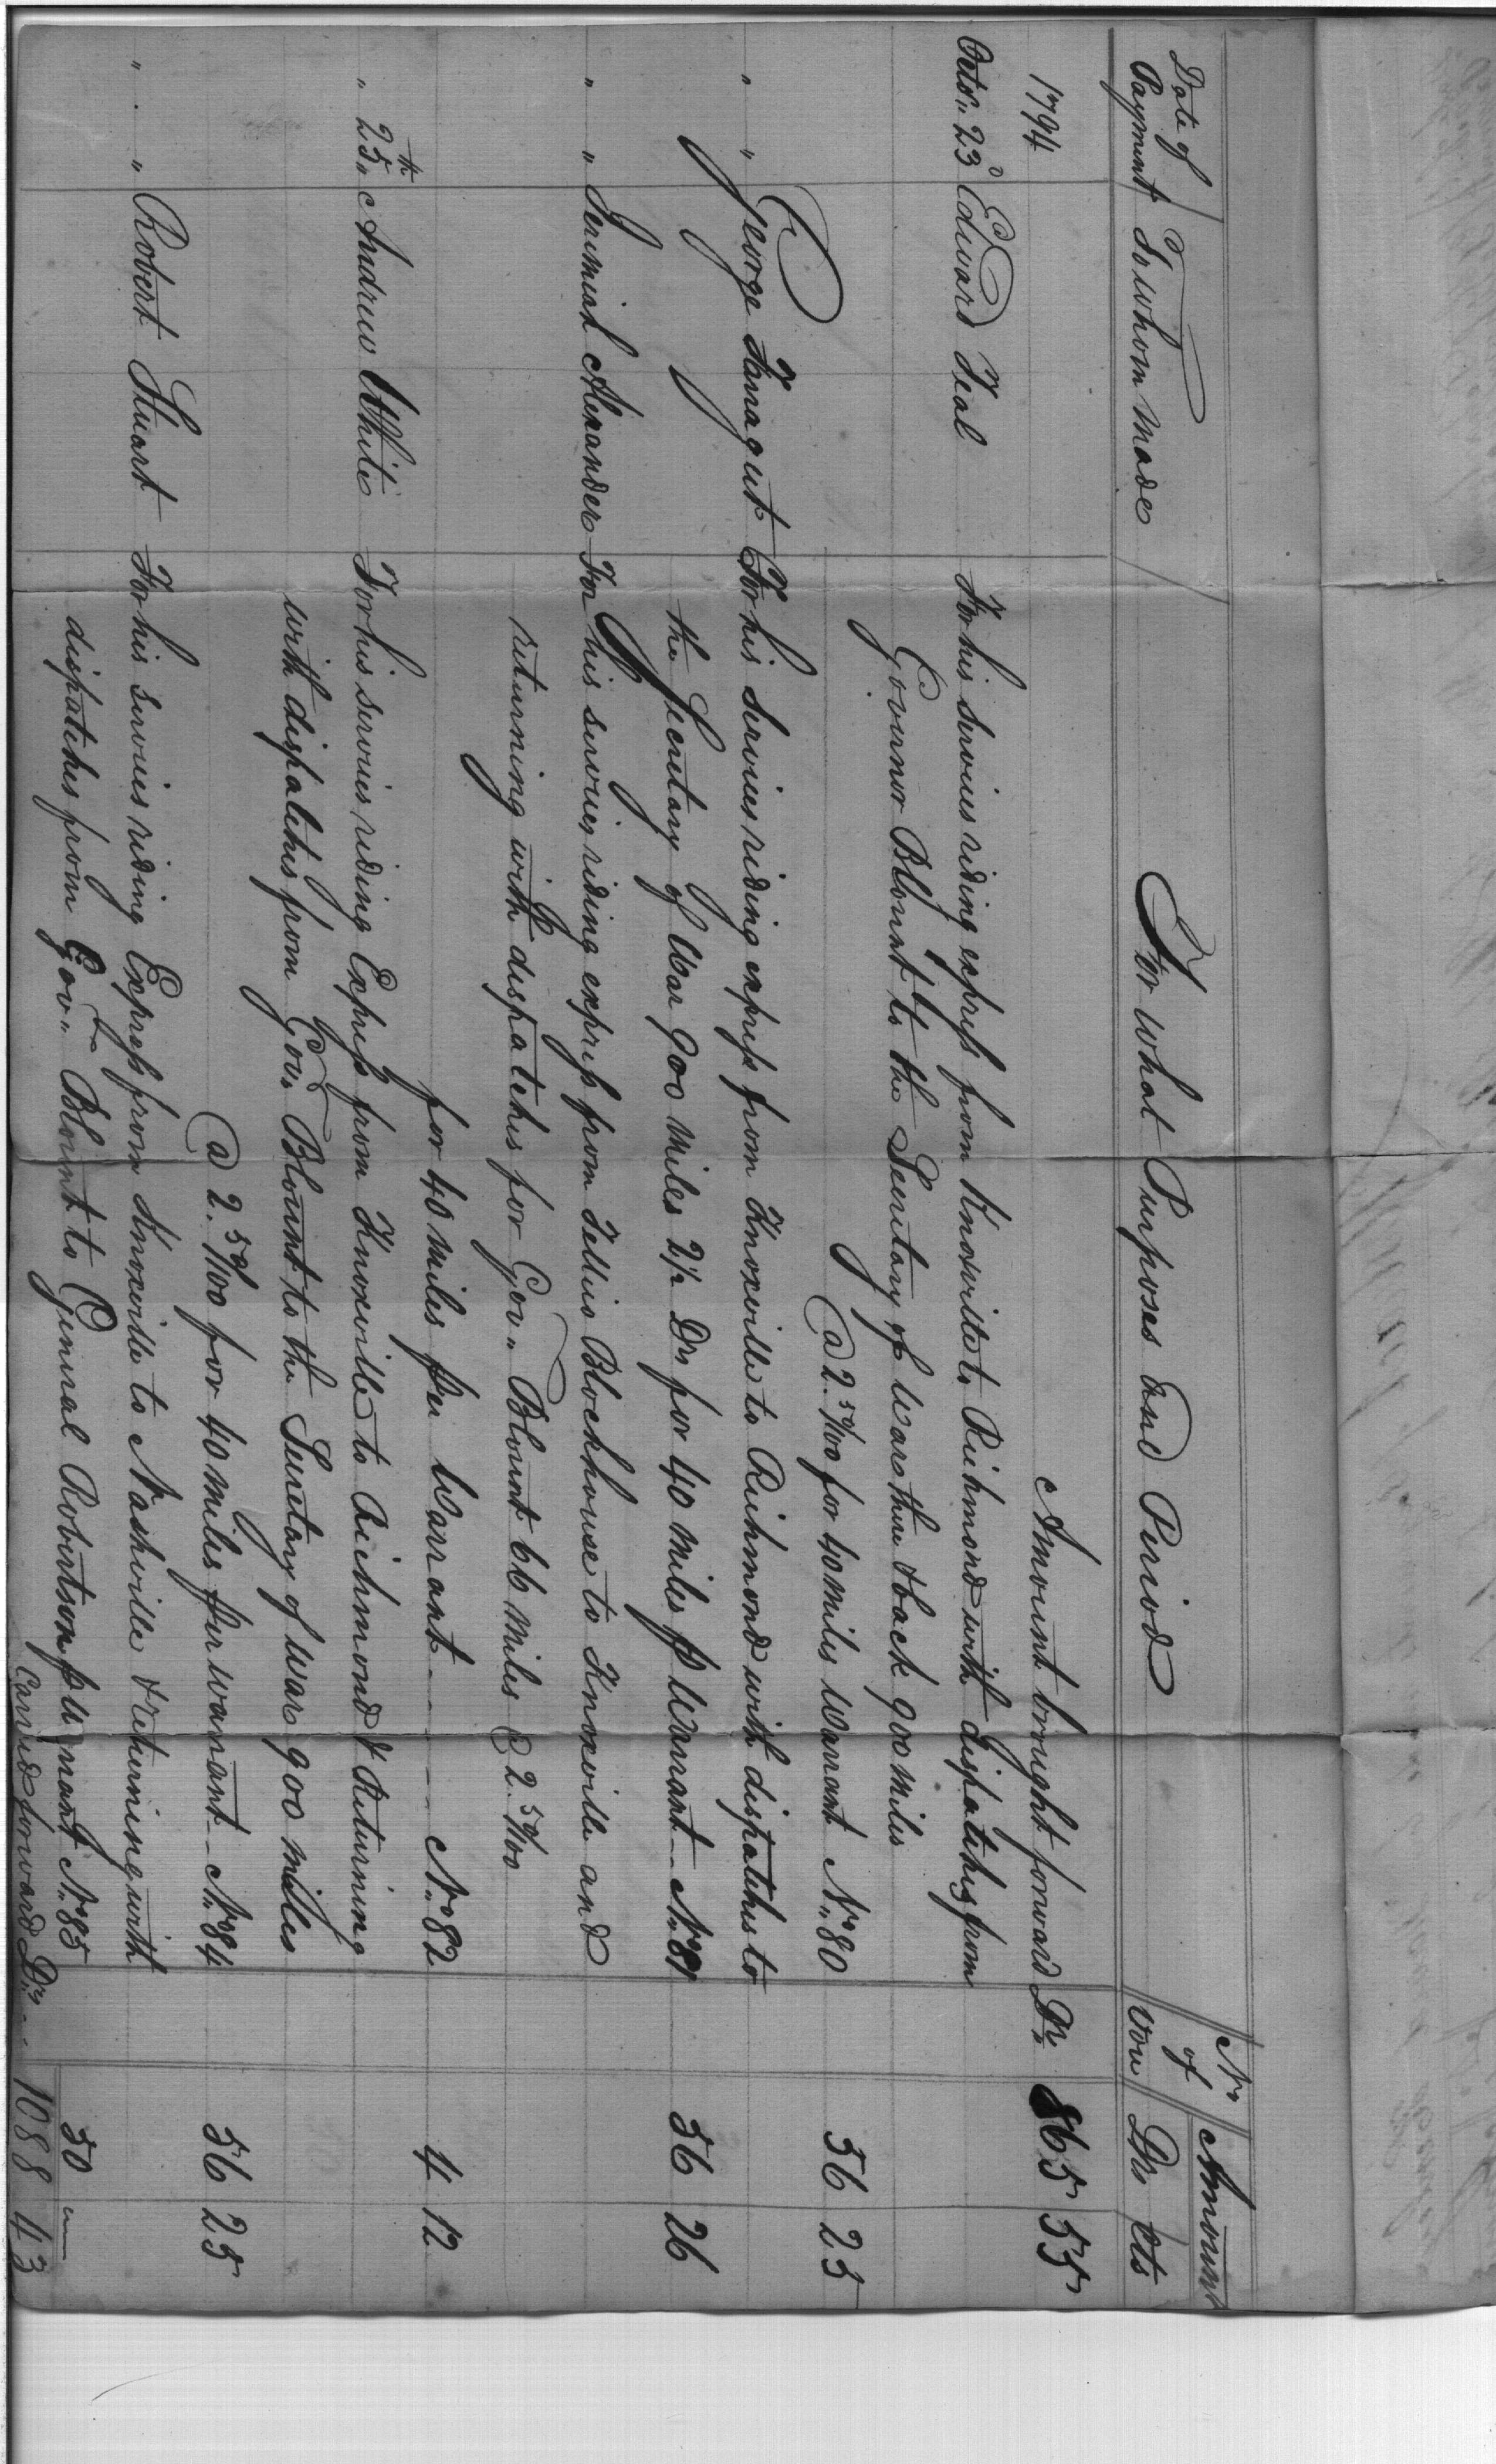 Date of Payment To whom made For what Purposes and Period No of vou Amount Drs Cts
1794 Amount brought forward Drs 865 55
Octo. 23d Edward Teal For his services riding express from Knoxville to Richmond with dispatches from
Governor Blount to the Secretary of War there & back 900 miles
@ 2.50/100 for 40 miles Warrant No 80 56 25
" " George Farragut For his services riding express from Knoxville to Richmond with dispatches to
the Secretary of War 900 miles 2 1/2 Drs for 40 miles p Warrant No 81 56 26
" " Jeremiah Alexander For his services riding express from Tellico Blockhouse to Knoxville and
returning with dispatches for Gov. Blount 66 miles @ 2.50/100
for 40 miles per Warrant No 82 4 12
" 25th Andrew White For his services riding Express from Knoxville to Richmond & Returning
with dispatches from Gov. Blount to the Secretary of War 900 miles
@ 2.50/100 for 40 miles per warrant No 84 56 25
" " Robert Stuart For his services riding Express from Knoxville to Nashville & returning with
dispatches from Govr. Blount to General Robertson No 85 50 —
Carried forward Drs 1088 43